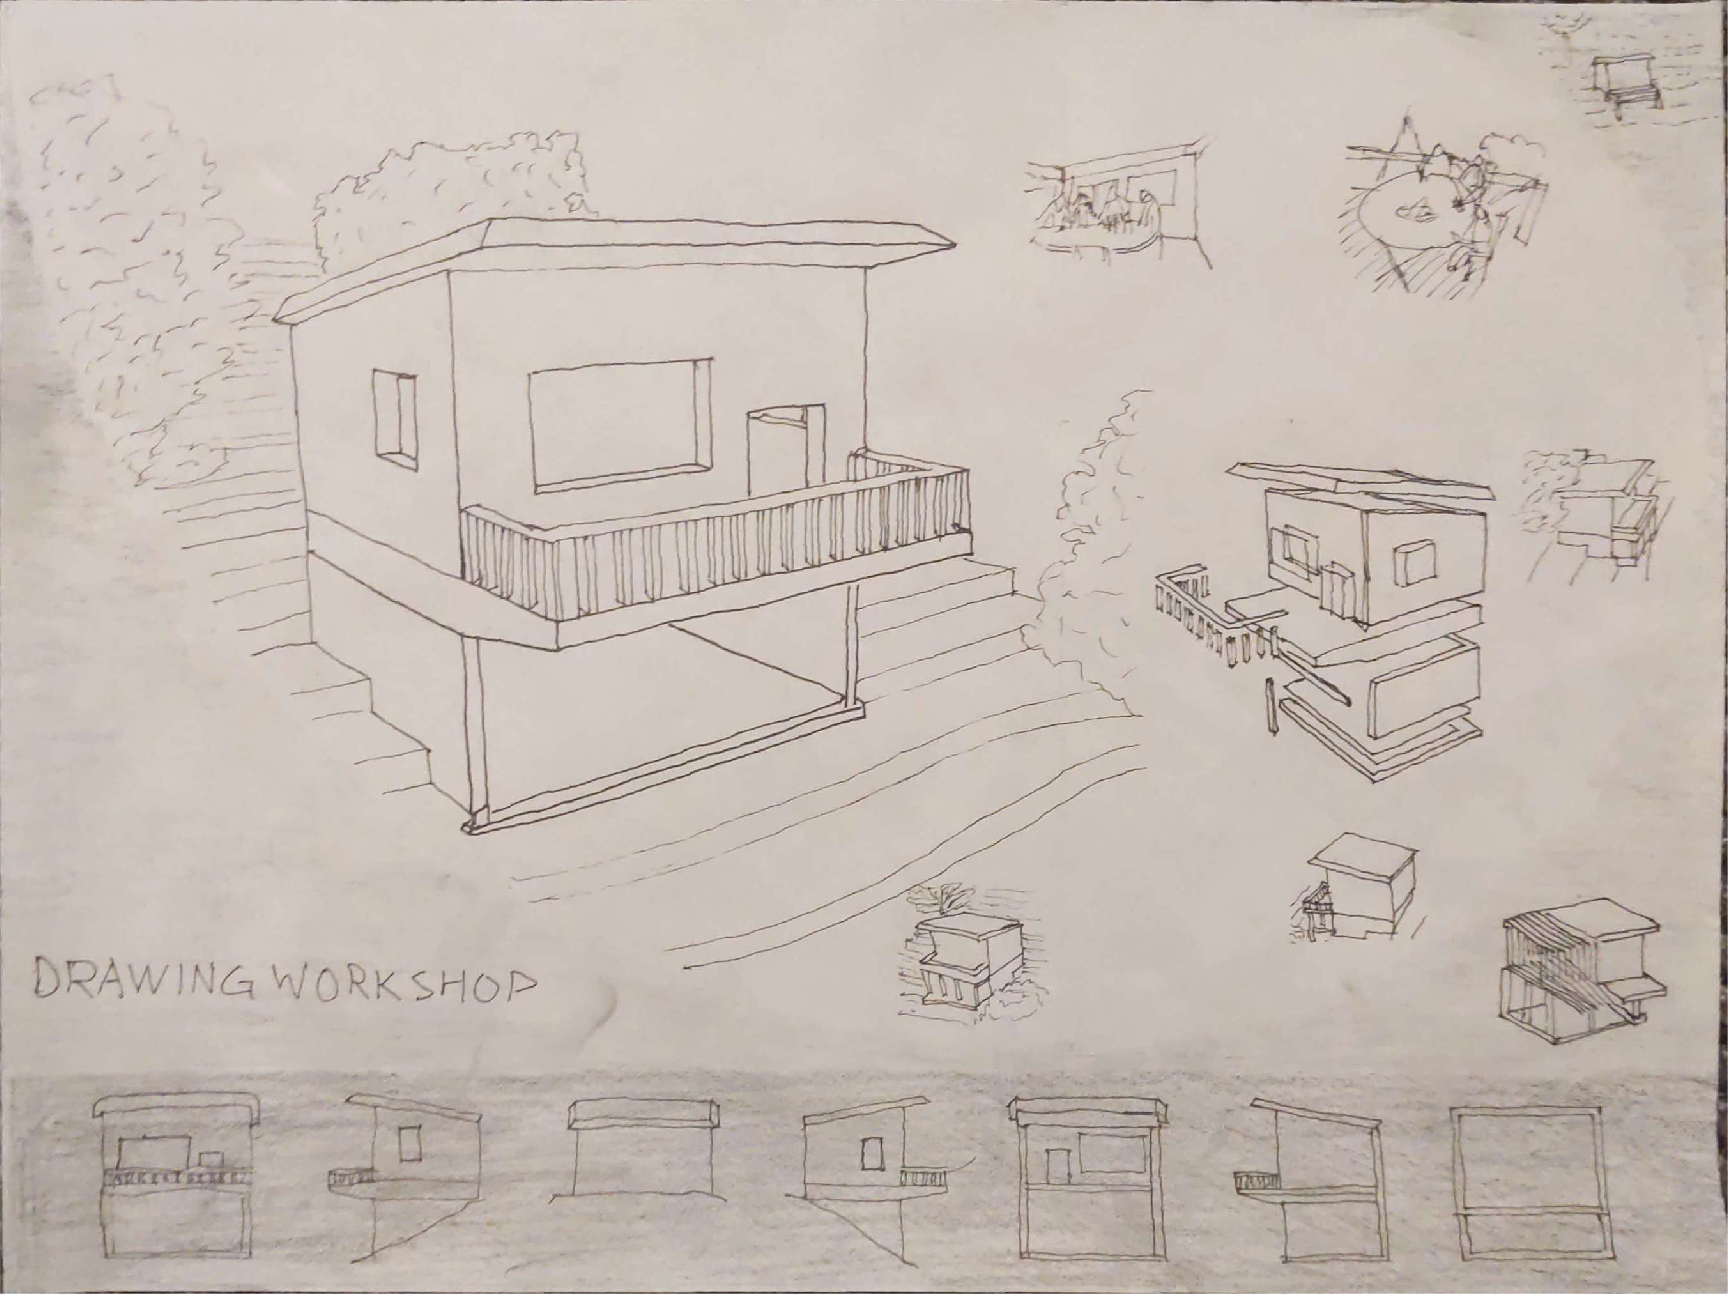 DRAWING WORKSHOP